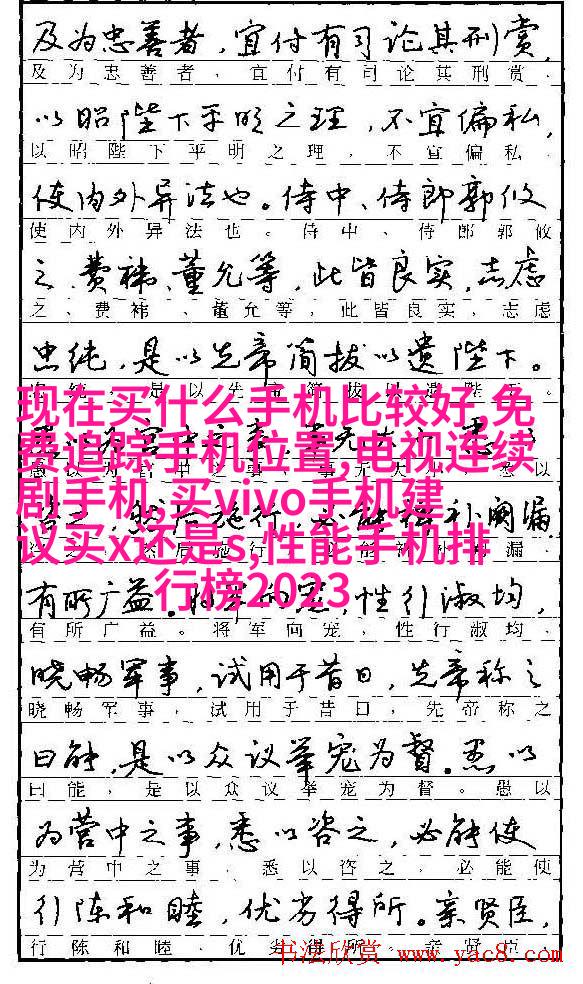 及为忠善者，宜付有司论其刑赏，
及为忠善者，宜付有司论其刑赏，
以昭陛下平明之理，不宜偏私，
以昭陛下平明之理，不宜偏私，
使内外异法也。侍中、侍郎郭攸
使内外异法也。侍中、侍郎郭攸
之、费祎、董允等，此皆良实，志虑
之、费祎、董允等，此皆良实，志虑
忠纯，是以先帝简拔以遗陛下。
现在买什么手机比较好,免
费追踪手机位置,电视连续
剧手机,买vivo手机建
议买x还是s,性能手机排
行榜2023
然后施行，必能 补阙漏
有所广益。 性行淑均，
有所广益。将军向宠，性行淑均，
晓畅军事，试用于昔日，先帝称之
晓畅军事，试用于昔日，先帝称之
曰能，是以众议举宠为督。愚以
曰能，是以众议举宠为督。愚以
为营中之事，悉以咨之，必能使
为营中之事，悉以咨之，必能使
行阵和睦，优劣得所。亲贤臣，
行阵和睦，优劣得所。亲贤臣，
书法欣赏 www.yac8.com